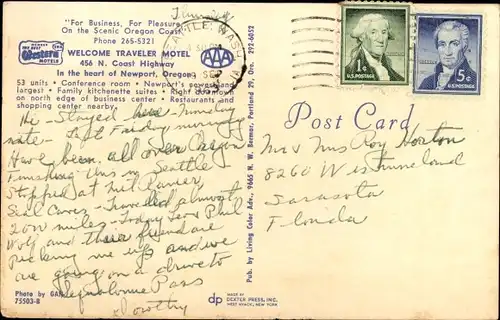 "For Business, For Pleasure
On the Scenic Oregon Coast"
Phone 265-5321
Best Western MOTELS
AAA
WELCOME TRAVELER MOTEL
456 N. Coast Highway
In the heart of Newport, Oregon
53 units • Conference room • Newport's newest and
largest • Family kitchenette suites • Right downtown
on north edge of business center • Restaurants and
shopping center nearby.
SEATTLE, WASH
SEP
1¢
U.S. POSTAGE
5¢
U.S. POSTAGE
Hi - Stayed here - Tuesday
nite - Left Friday
Have been all over Oregon
Finishing this in Seattle
Stopped at Mt Ranier
Seal Caves - Travelled almost
2000 miles - Today Leo & Phil
Wolf and their friend are
picking me up and we
are going on a drive to
Snoqualmie Pass
Dorothy
Photo by
75503-B
Pub. by Living Color Adv., 9665 N. W. Bermar, Portland 29, Ore. 292-6852
dp
MADE BY
DEXTER PRESS, INC.
WEST NYACK, NEW YORK
Post Card
Mr & Mrs Roy Horton
8260 W
Sarasota
Florida